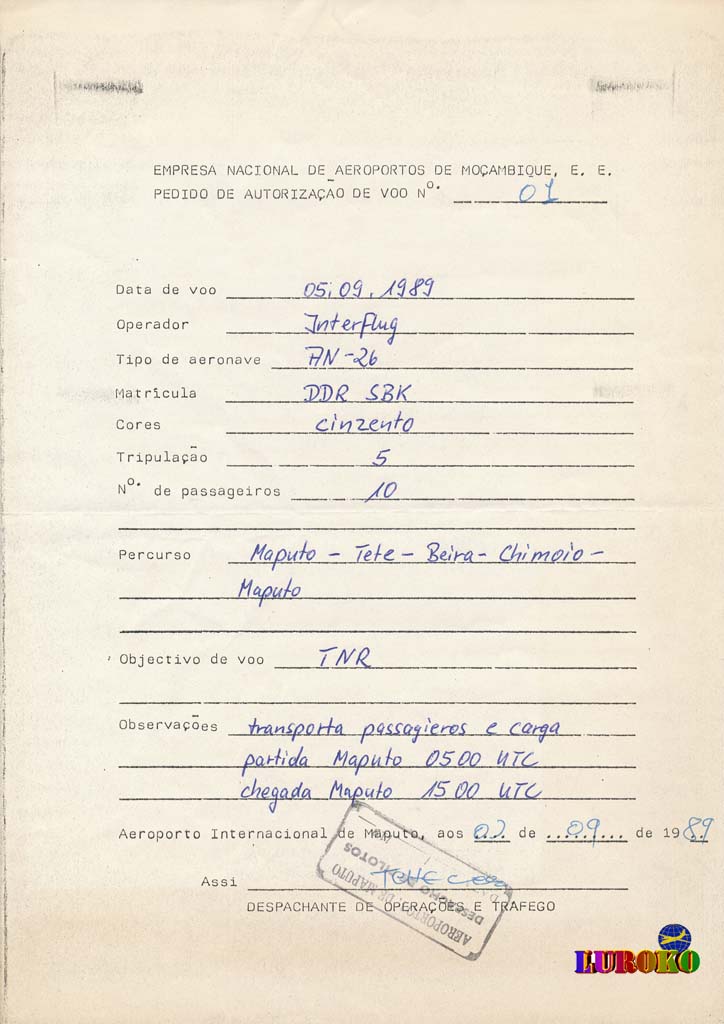 EMPRESA NACIONAL DE AEROPORTOS DE MOÇAMBIQUE, E. E.
PEDIDO DE AUTORIZAÇÃO DE VOO Nº. 01
Data de voo 05.09.1989
Operador Interflug
Tipo de aeronave AN-26
Matrícula DDR SBK
Cores cinzento
Tripulação 5
Nº. de passageiros 10
Percurso Maputo - Tete - Beira - Chimoio -
Maputo
Objectivo de voo TNR
Observações transporta passagieros e carga
partida Maputo 0500 UTC
chegada Maputo 1500 UTC
Aeroporto Internacional de Maputo, aos de 09 de 1989
Assi
DESPACHANTE DE OPERAÇÕES E TRAFEGO
AEROPORTO DE MAPUTO
PILOTOS
LUROKO